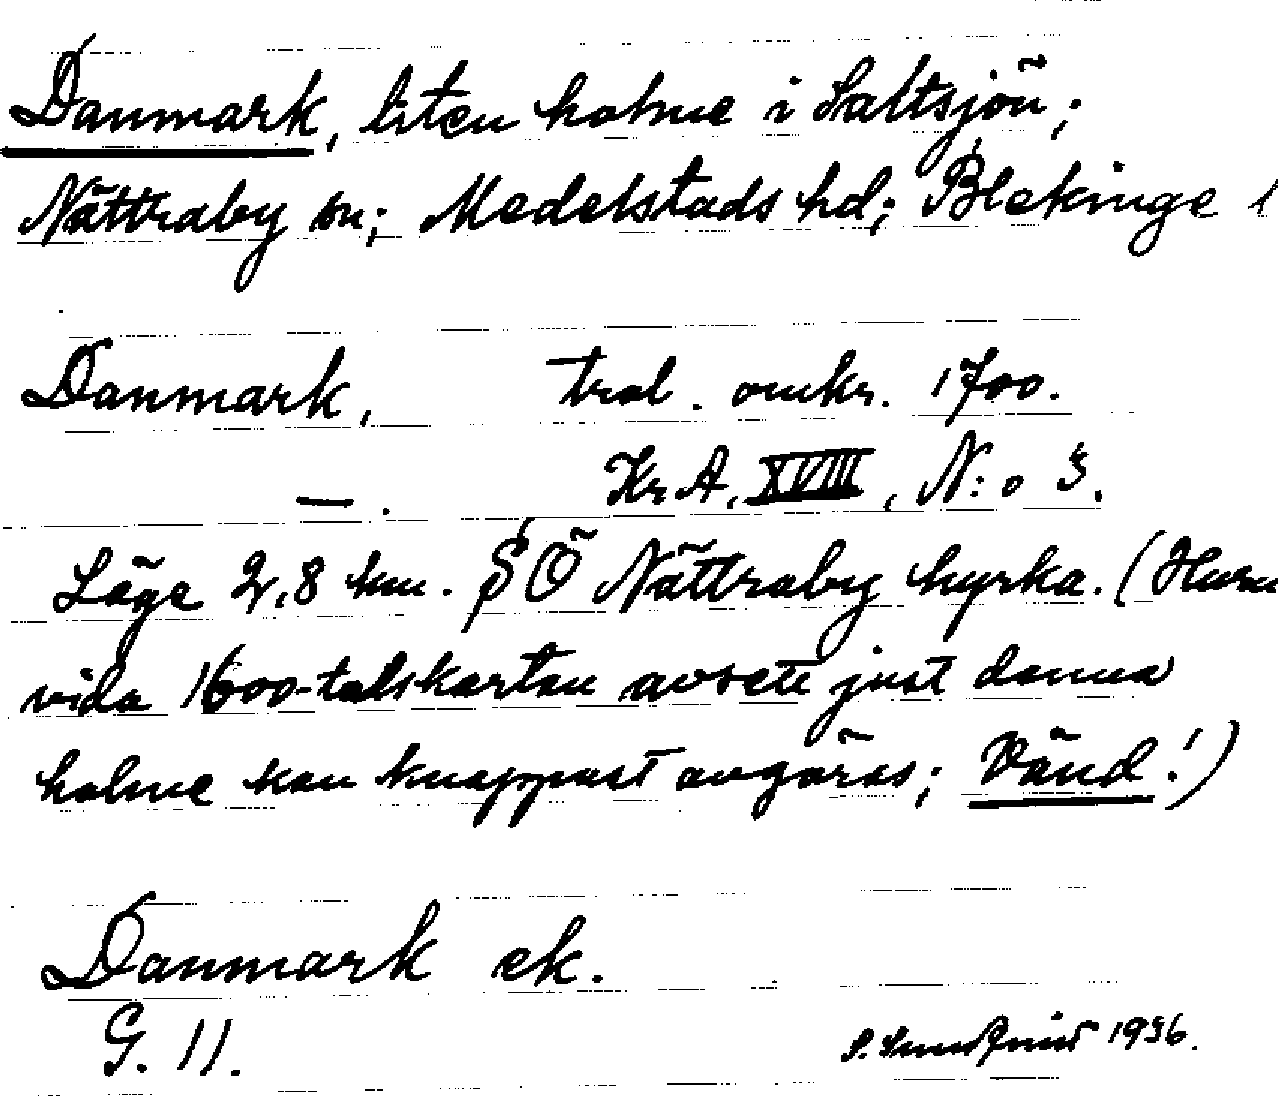 Danmark, liten holme i Saltsjön;
Nättraby sn; Medelstads hd; Blekinge l
Danmark, trol. omkr. 1700.
—. Kr. A. XVIII, N:o 3.
Läge 2,8 km. SÖ Nättraby kyrka. (Huru
vida 1600-talskartan avsett just denna
holme kan knappast avgöras; Vänd!)
Danmark ek.
G. 11.
1936.